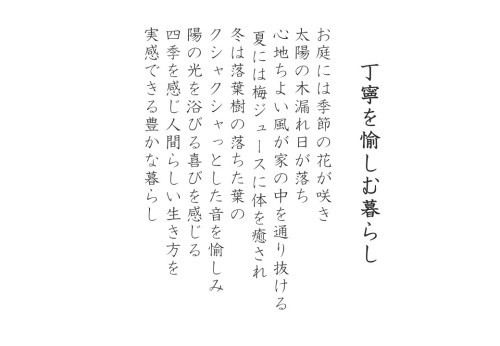 丁寧を愉しむ暮らし
お庭には季節の花が咲き
太陽の木漏れ日が落ち
心地ちよい風が家の中を通り抜ける
夏には梅ジュースに体を癒され
冬は落葉樹の落ちた葉の
クシャクシャっとした音を愉しみ
陽の光を浴びる喜びを感じる
四季を感じ人間らしい生き方を
実感できる豊かな暮らし